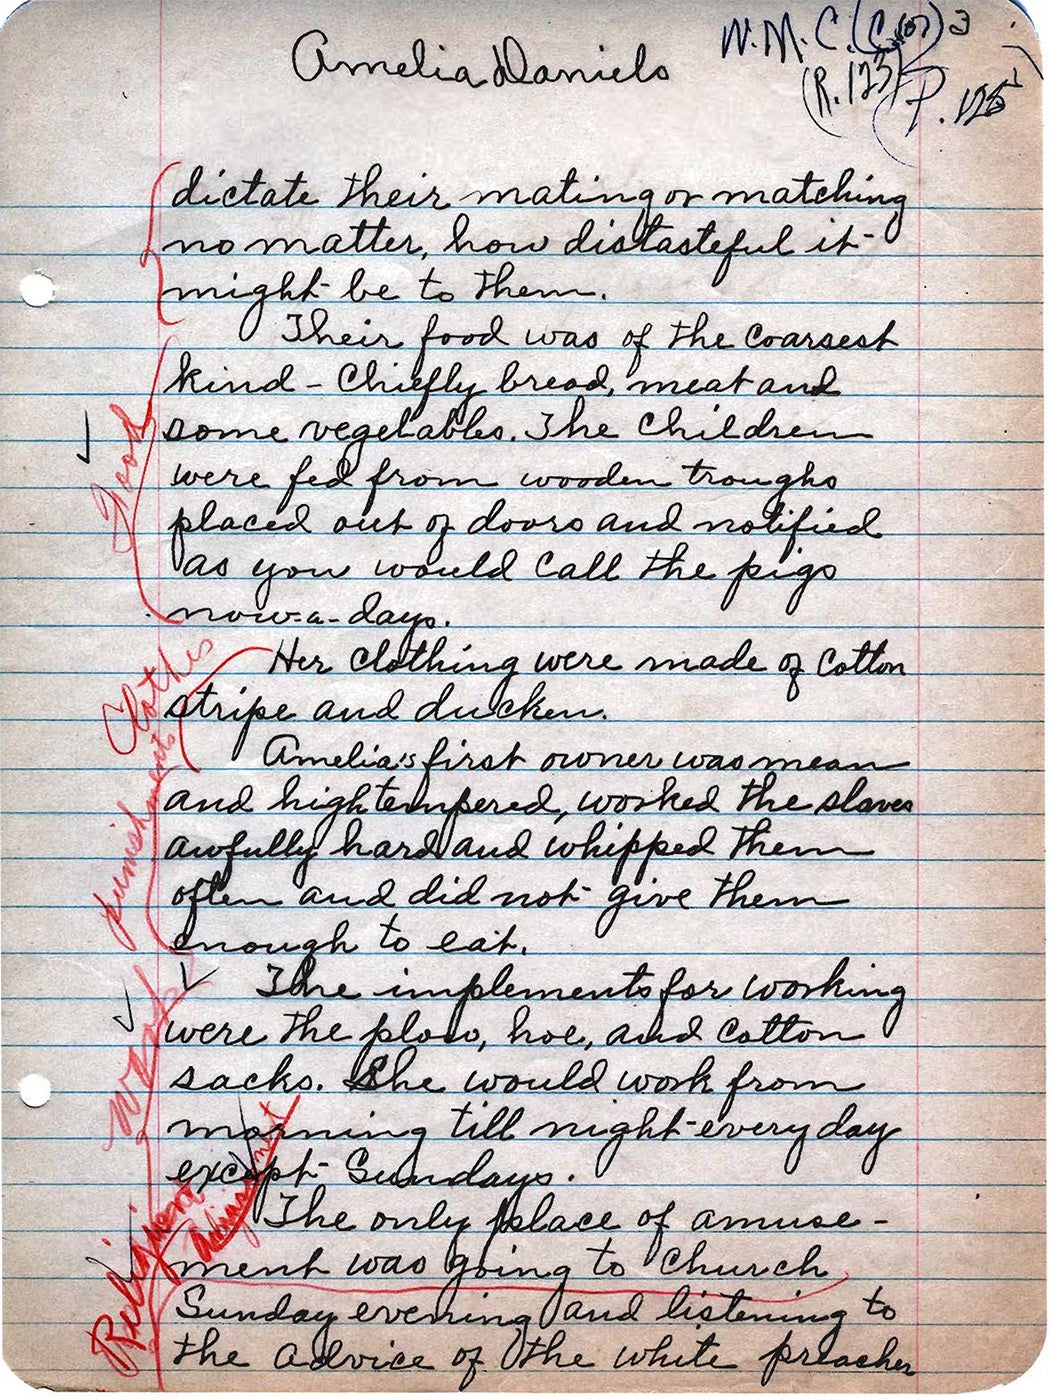 Amelia Daniels
W.M.C. 3
(R.123)
P. 125
dictate their mating or matching
no matter, how distasteful it
might be to them.
Their food was of the coarsest
kind - Chiefly bread, meat and
some vegetables. The Children
were fed from wooden troughs
placed out of doors and notified
as you would call the pigs
now-a-days.
Food
Her clothing were made of cotton
stripe and ducken.
Clothes
Amelia's first owner was mean
and hightempered, worked the slaves
awfully hard and whipped them
often and did not give them
enough to eat.
punishments
The implements for working
were the plow, hoe, and cotton
sacks. She would work from
morning till night every day
except Sundays.
Work
The only place of amuse-
ment was going to Church
Sunday evening and listening to
the advice of the white preacher
Religion